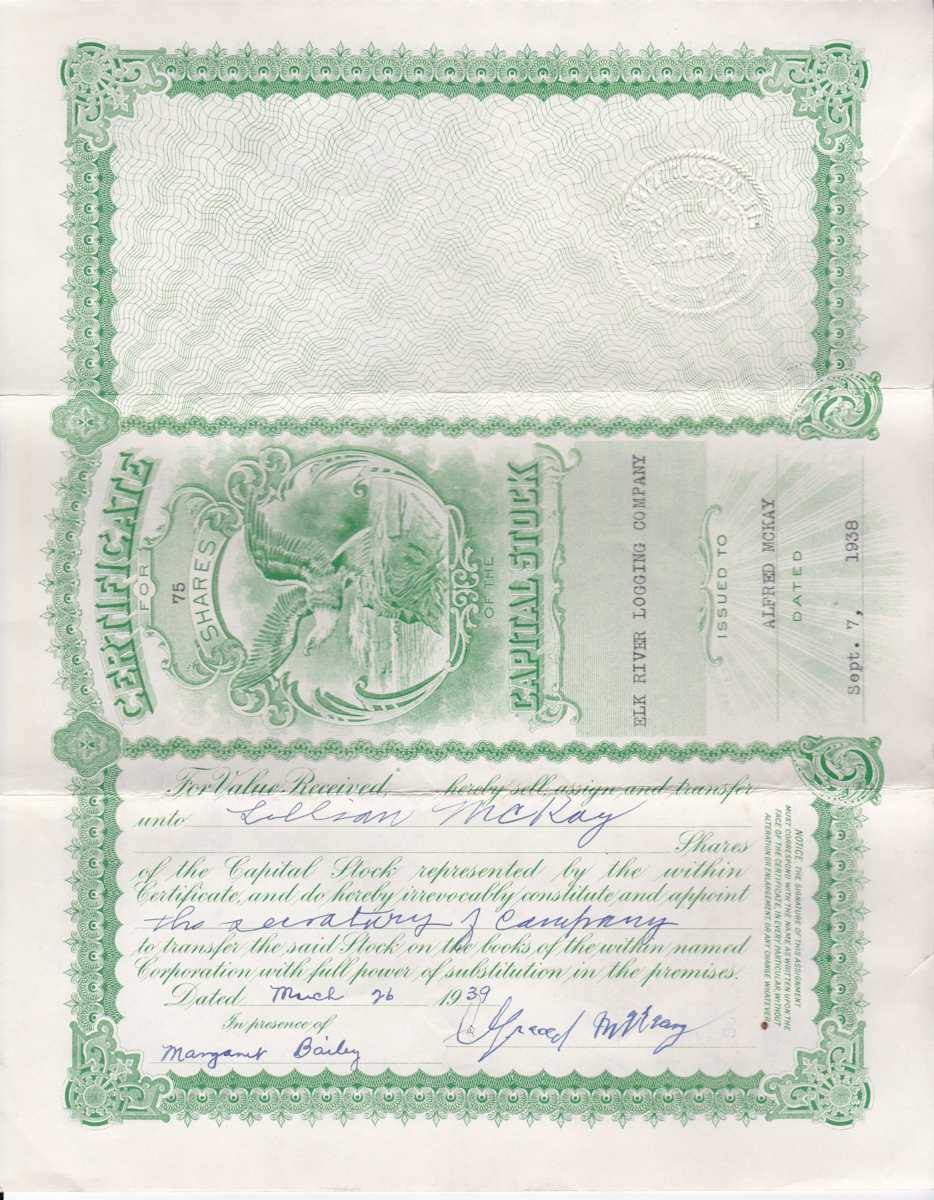 CERTIFICATE
FOR
75
SHARES
OF THE
CAPITAL STOCK
ELK RIVER LOGGING COMPANY
ISSUED TO
ALFRED MCKAY
DATED
Sept. 7, 1938
For Value Received hereby sell, assign and transfer
unto Lillian McKay
Shares
of the Capital Stock represented by the within
Certificate, and do hereby irrevocably constitute and appoint
the secratary of Company
to transfer the said Stock on the books of the within named
Corporation with full power of substitution in the premises.
Dated March 26 1939
In presence of
Alfred McKay
Margaret Bailey
NOTICE. THE SIGNATURE OF THIS ASSIGNMENT
MUST CORRESPOND WITH THE NAME AS WRITTEN UPON THE
FACE OF THE CERTIFICATE, IN EVERY PARTICULAR, WITHOUT
ALTERATION OR ENLARGEMENT, OR ANY CHANGE WHATEVER.